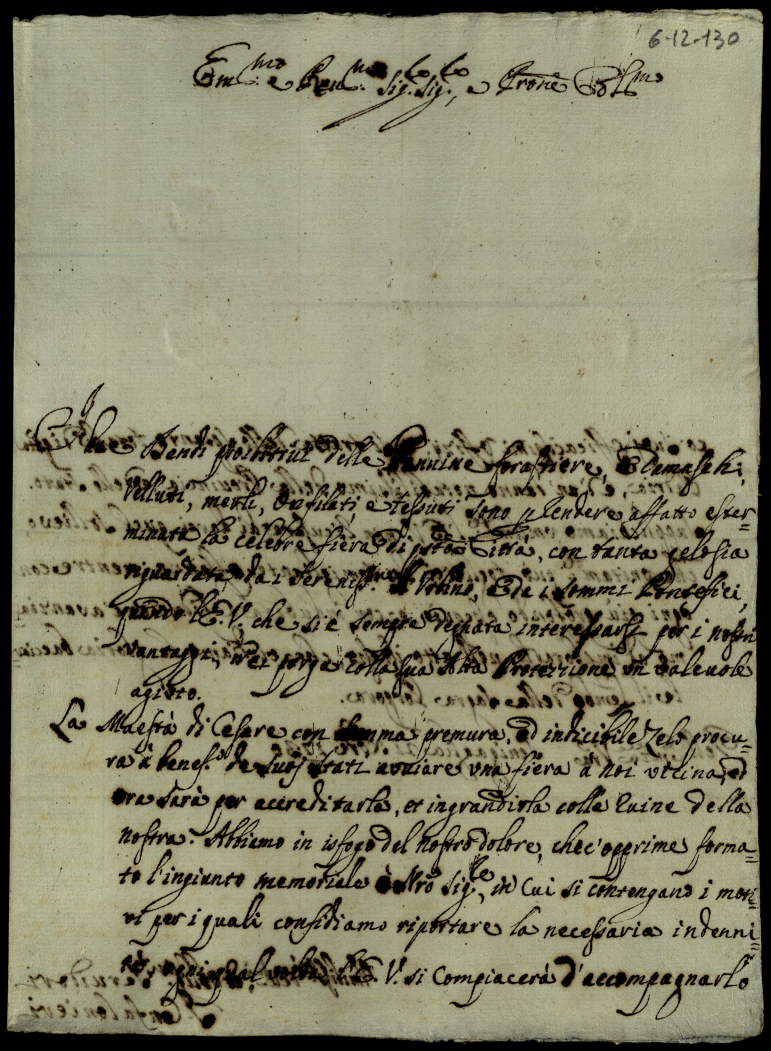 6-12-130
Em.mo e Reu.mo Sig.re Sig.re, e Prone Col.mo
Bandi proibitiui delle Pannine forastiere, Damaschi,
Velluti, merli, Orfilati, e tessuti sono p rendere affatto ester-
minata la celebre fiera di q.sta Città, con tanta gelosia
riguardata da i Sereniss.mi d'Urbino, e da i sommi Pontefici,
quando l'E. V. che si è sempre degnata interessarsi per i nostri
vantaggi, non ci porge colla sua Alta Protezzione un valeuole
agiuto.
La Maestà di Cesare con somma premura, ed indicibile zelo procu-
ra à benef.o de suoj stati auuiare vna fiera à noi vicina, ed
ora sarà per accreditarla, et ingrandirla colle ruine della
nostra. Abbiamo in isfogo del nostro dolore, che c'opprime forma-
to l'ingiunto memoriale à Nro Sig.re, in cui si contengano i moti-
vi per i quali confidiamo riportare la necessaria indenni-
tà, ogni qual volta l'E. V. si compiacerà d'accompagnarlo